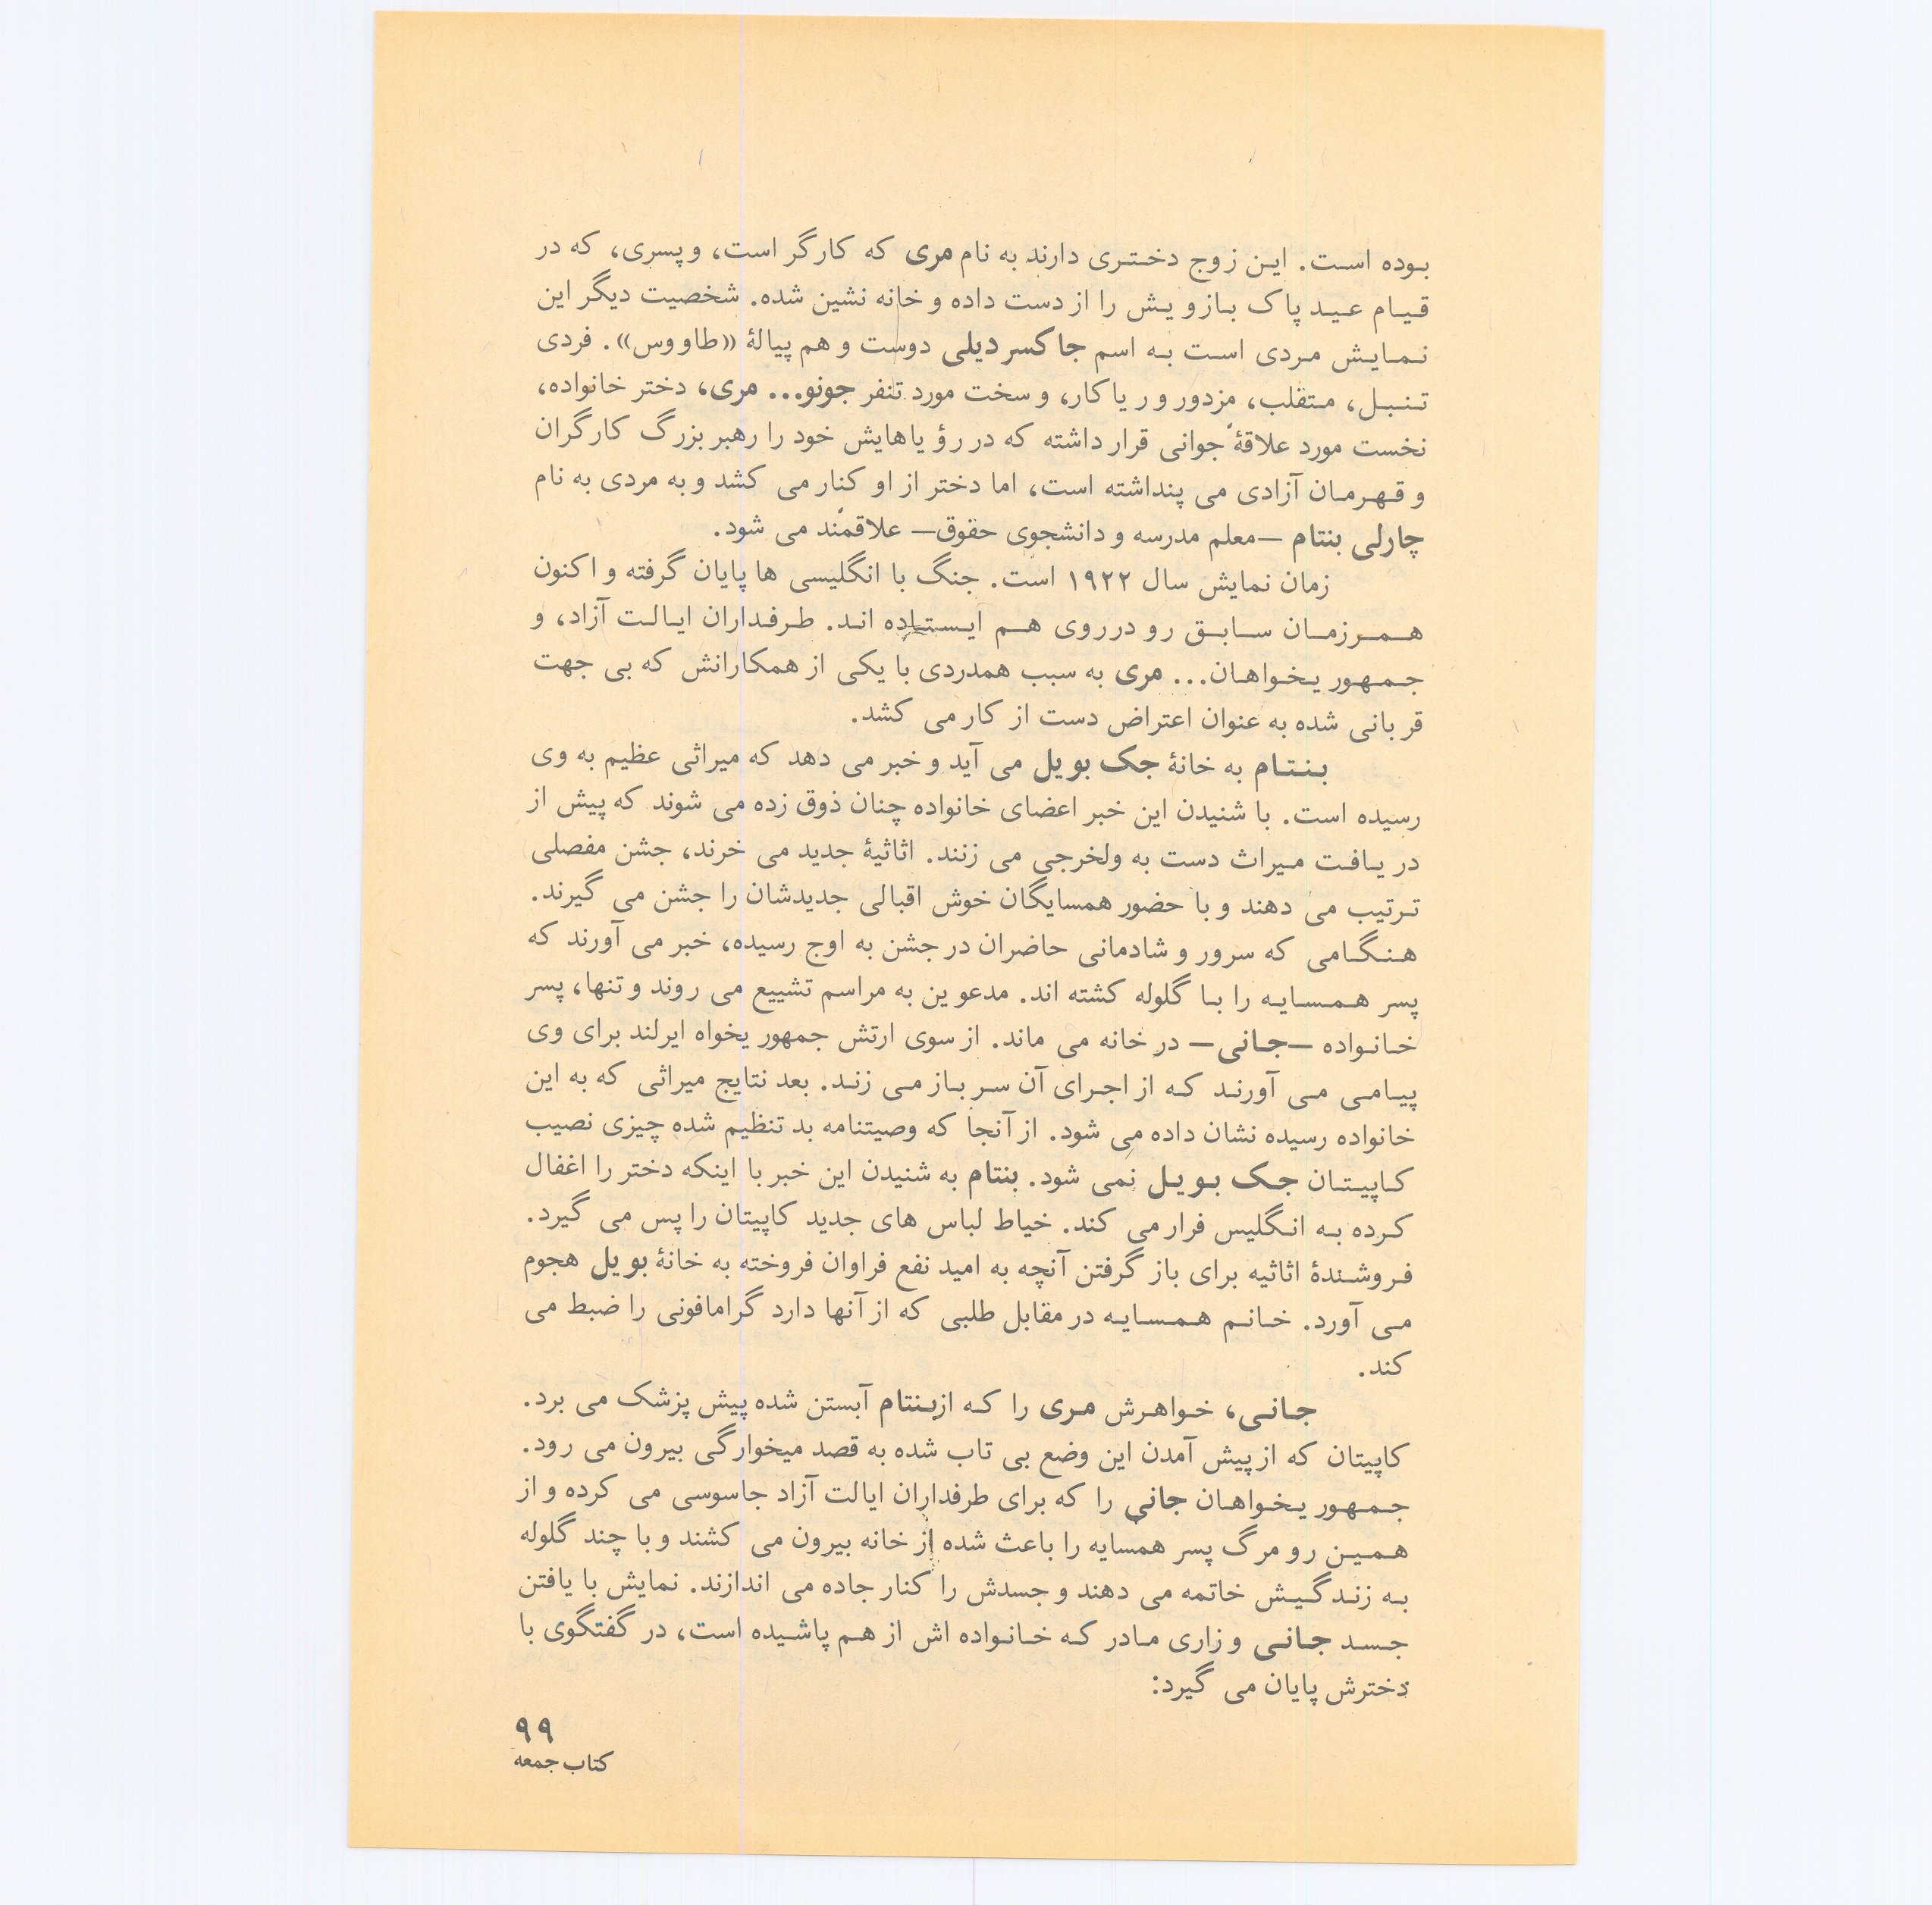 بوده است. این زوج دختری دارند به نام مری که کارگر است، و پسری، که در
قیام عید پاک بازویش را از دست داده و خانه نشین شده. شخصیت دیگر این
نمایش مردی است به اسم جاکسر دیلی دوست و هم پیالهٔ «طاووس». فردی
تنبل، متقلب، مزدور و ریاکار، و سخت مورد تنفر جونو... مری، دختر خانواده،
نخست مورد علاقهٔ جوانی قرار داشته که در رؤیاهایش خود را رهبر بزرگ کارگران
و قهرمان آزادی می پنداشته است، اما دختر از او کنار می کشد و به مردی به نام
چارلی بنتام —معلم مدرسه و دانشجوی حقوق— علاقمند می شود.
زمان نمایش سال ۱۹۲۲ است. جنگ با انگلیسی ها پایان گرفته و اکنون
همرزمان سابق رو در روی هم ایستاده اند. طرفداران ایالت آزاد، و
جمهوریخواهان... مری به سبب همدردی با یکی از همکارانش که بی جهت
قربانی شده به عنوان اعتراض دست از کار می کشد.
بنتام به خانهٔ جک بویل می آید و خبر می دهد که میراثی عظیم به وی
رسیده است. با شنیدن این خبر اعضای خانواده چنان ذوق زده می شوند که پیش از
دریافت میراث دست به ولخرجی می زنند. اثاثیهٔ جدید می خرند، جشن مفصلی
ترتیب می دهند و با حضور همسایگان خوش اقبالی جدیدشان را جشن می گیرند.
هنگامی که سرور و شادمانی حاضران در جشن به اوج رسیده، خبر می آورند که
پسر همسایه را با گلوله کشته اند. مدعوین به مراسم تشییع می روند و تنها، پسر
خانواده —جانی— در خانه می ماند. از سوی ارتش جمهوریخواه ایرلند برای وی
پیامی می آورند که از اجرای آن سر باز می زند. بعد نتایج میراثی که به این
خانواده رسیده نشان داده می شود. از آنجا که وصیتنامه بد تنظیم شده چیزی نصیب
کاپیتان جک بویل نمی شود. بنتام به شنیدن این خبر با اینکه دختر را اغفال
کرده به انگلیس فرار می کند. خیاط لباس های جدید کاپیتان را پس می گیرد.
فروشندهٔ اثاثیه برای باز گرفتن آنچه به امید نفع فراوان فروخته به خانهٔ بویل هجوم
می آورد. خانم همسایه در مقابل طلبی که از آنها دارد گرامافونی را ضبط می
کند.
جانی، خواهرش مری را که از بنتام آبستن شده پیش پزشک می برد.
کاپیتان که از پیش آمدن این وضع بی تاب شده به قصد میخوارگی بیرون می رود.
جمهوریخواهان جانی را که برای طرفداران ایالت آزاد جاسوسی می کرده و از
همین رو مرگ پسر همسایه را باعث شده از خانه بیرون می کشند و با چند گلوله
به زندگیش خاتمه می دهند و جسدش را کنار جاده می اندازند. نمایش با یافتن
جسد جانی و زاری مادر که خانواده اش از هم پاشیده است، در گفتگوی با
دخترش پایان می گیرد:
۹۹
کتاب جمعه